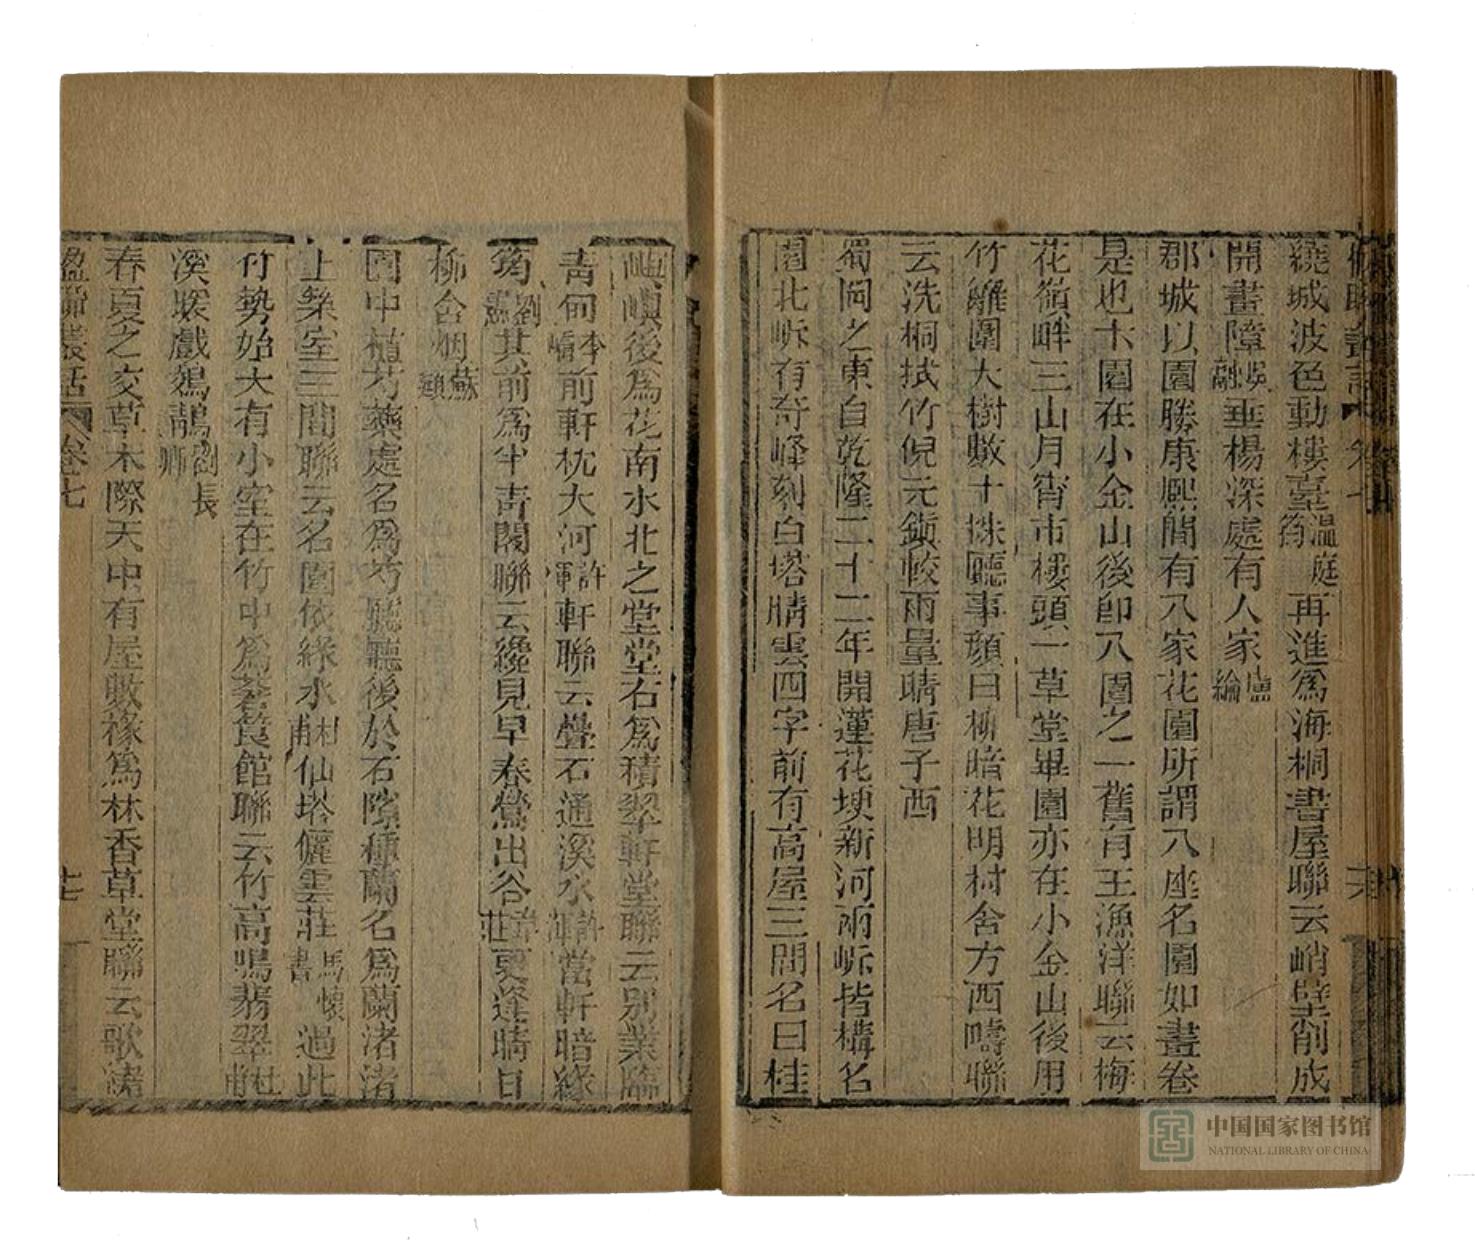 繞城波色動樓臺溫庭筠再進爲海桐書屋聯云峭壁削成
開畫障吳融垂楊深處有人家盧綸
郡城以園勝康熙間有八家花園所謂八座名園如畫卷
是也卞園在小金山後卽八園之一舊有王漁洋聯云梅
花嶺畔三山月宵市樓頭一草堂畢園亦在小金山後用
竹籬圍大樹數十株廳事顏曰柳暗花明村舍方西疇聯
云洗桐拭竹倪元鎭較雨量晴唐子西
蜀岡之東自乾隆二十二年開蓮花埂新河兩岸皆構名
園北岸有奇峰刻白塔晴雲四字前有高屋三間名曰桂
嶼嶼後爲花南水北之堂堂右爲積翠軒堂聯云別業臨
青甸李嶠前軒枕大河許渾軒聯云疊石通溪水許渾當軒暗綠
筠劉憲其前爲半青閣聯云纔見早春鶯出谷韋莊更逢晴日
柳含烟蘇頲
園中植芍藥處名爲芍廳廳後於石隙種蘭名爲蘭渚渚
上築室三間聯云名園依綠水杜甫仙塔儷雲莊馬懷素過此
竹勢始大有小室在竹中爲蒼筤館聯云竹高鳴翡翠杜甫
溪暖戲鵁鶄劉長卿
春夏之交草木際天中有屋數椽爲林香草堂聯云歌緒
楹聯叢話 卷七 廿